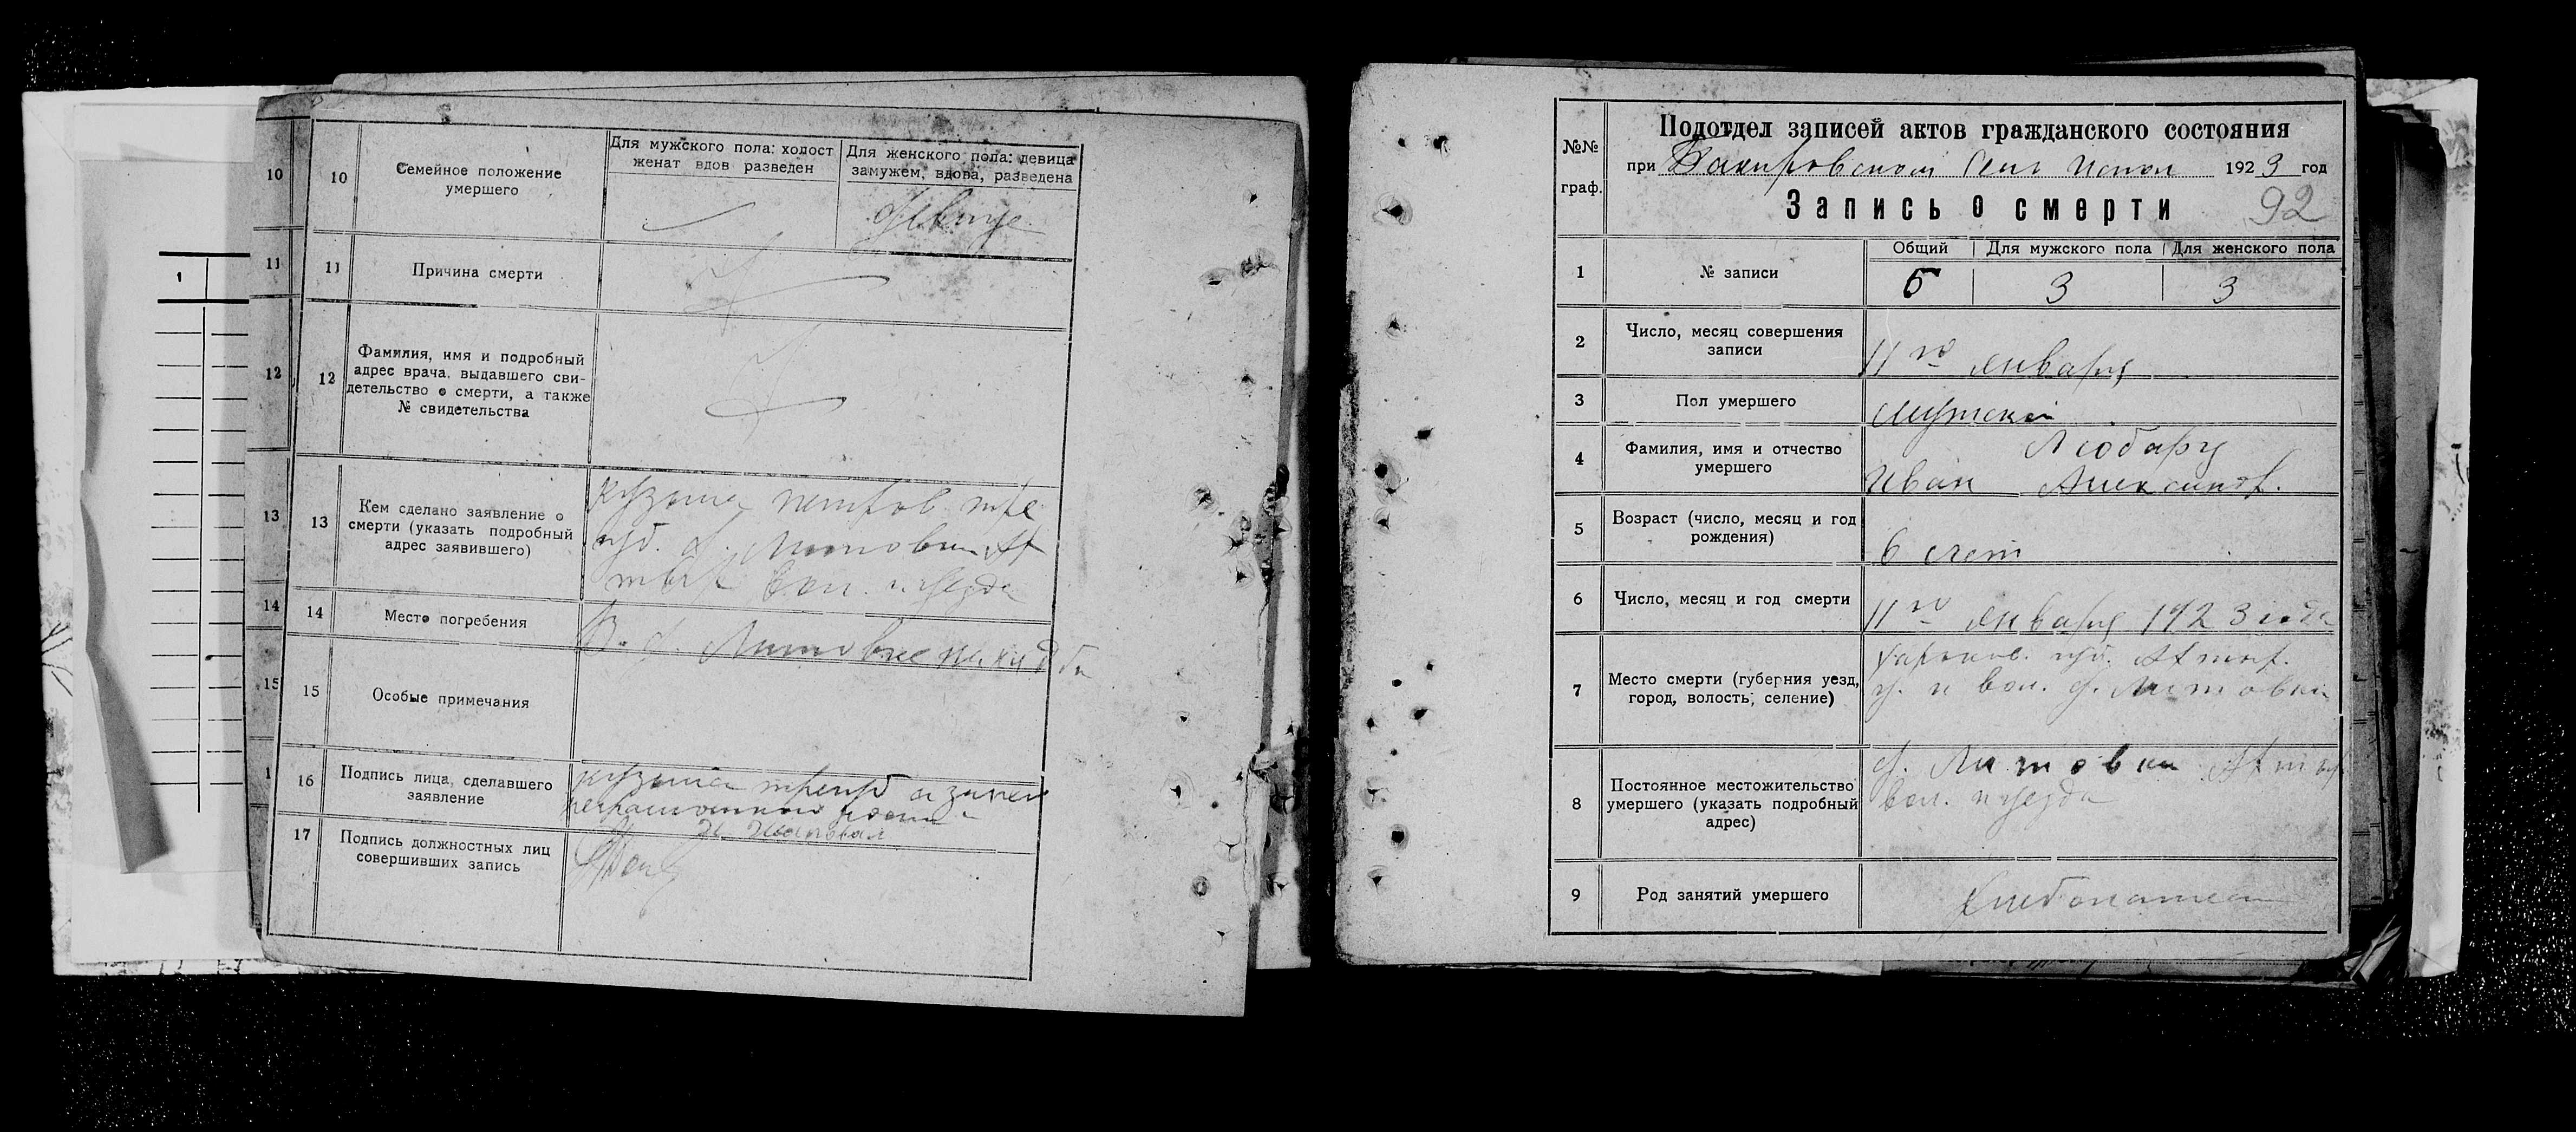 10
11
12
13
14
15
1
1
10
Семейное положение
умершего
Для мужского пола: холост
женат вдов разведен
Для женского пола: девица
замужем, вдова, разведена
девице
11
Причина смерти
12
Фамилия, имя и подробный
адрес врача, выдавшего сви-
детельство о смерти, а также
№ свидетельства
13
Кем сделано заявление о
смерти (указать подробный
адрес заявившего)
кузьма петров тре
губ. с. Литовки Ах
тыр вол. и уезда
14
Место погребения
В с. Литовке на кладби
15
Особые примечания
16
Подпись лица, сделавшего
заявление
кузьма трегуб а за него
неграмотный
17
Подпись должностных лиц
совершивших запись
№№
граф.
Подотдел записей актов гражданского состояния
при Бакировском Сель Испол 1923 год
Запись о смерти
92
1
№ записи
Общий
Для мужского пола
Для женского пола
6
3
3
2
Число, месяц совершения
записи
11го января
3
Пол умершего
мужской
4
Фамилия, имя и отчество
умершего
Любарц
Иван Алексинов.
5
Возраст (число, месяц и год
рождения)
6 лет
6
Число, месяц и год смерти
11го января 1923 года
7
Место смерти (губерния уезд,
город, волость, селение)
Харьков. губ. Ахтыр.
у. и вол. с. Литовки
8
Постоянное местожительство
умершего (указать подробный
адрес)
с. Литовки Ахтыр
вол. и уезда
9
Род занятий умершего
хлебопашец